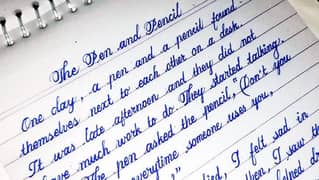 The Pen and Pencil
One day, a pen and a pencil found
themselves next to each other on a desk.
It was late afternoon and they did not
have much work to do. They started talking.
The pen asked the pencil, "Don't you
everytime someone uses you,
I felt sad in
then, I saw the